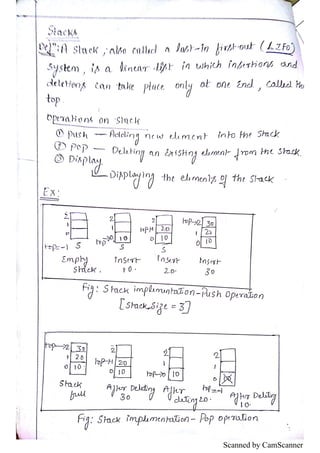 Stacks
Defn: A Stack, also called a last-in first-out (LIFO)
System, is a linear list in which insertions and
deletions can take place only at one End, called the
top.
Operations on stack
① Push — Adding new element into the Stack
② Pop — Deleting an Existing element from the Stack
③ Display
Displaying the elements of the Stack
Ex:
2 2 2 top→2 30
1 1 top→1 20 1 20
top=-1 0 top→0 10 0 10 0 10
S S S
Empty Insert Insert Insert
Stack. 10. 20. 30
Fig: Stack implementation-Push Operation
[Stack_Size = 3]
top→2 30 2 2 2
1 20 top→1 20 1 1
0 10 0 10 top→0 10 0
Stack After Deleting After top=-1 After Deleting
full 30 deleting 20. 10.
Fig: Stack implementation- Pop operation
Scanned by CamScanner